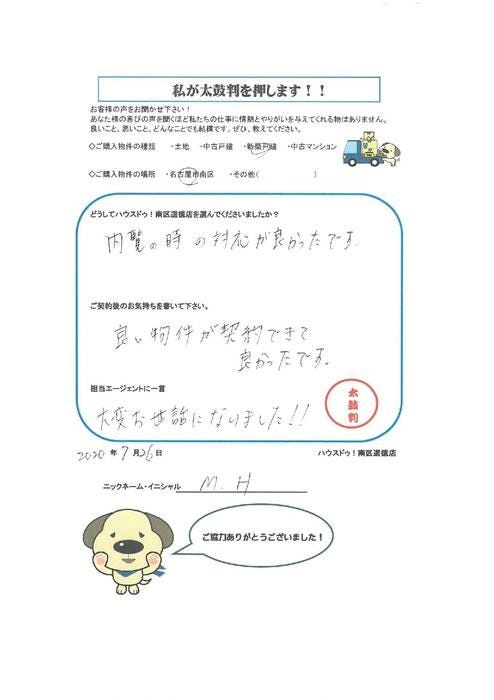 私が太鼓判を押します！！
お客様の声をお聞かせ下さい！
あなた様の喜びの声を聞くほど私たちの仕事に情熱とやりがいを与えてくれる物はありません。
良いこと、悪いこと、どんなことでも結構です。ぜひ、教えてください。
◇ご購入物件の種類　・土地　・中古戸建　・新築戸建　・中古マンション
◇ご購入物件の場所　・名古屋市南区　・その他(　　　　　)
どうしてハウスドゥ！南区道徳店を選んでくださいましたか？
内覧の時の対応が良かったです。
ご契約後のお気持ちを書いて下さい。
良い物件が契約できて
良かったです。
担当エージェントに一言
大変お世話になりました!!
太鼓判
2020年7月26日
ハウスドゥ！南区道徳店
ニックネーム・イニシャル M.H
ご協力ありがとうございました！